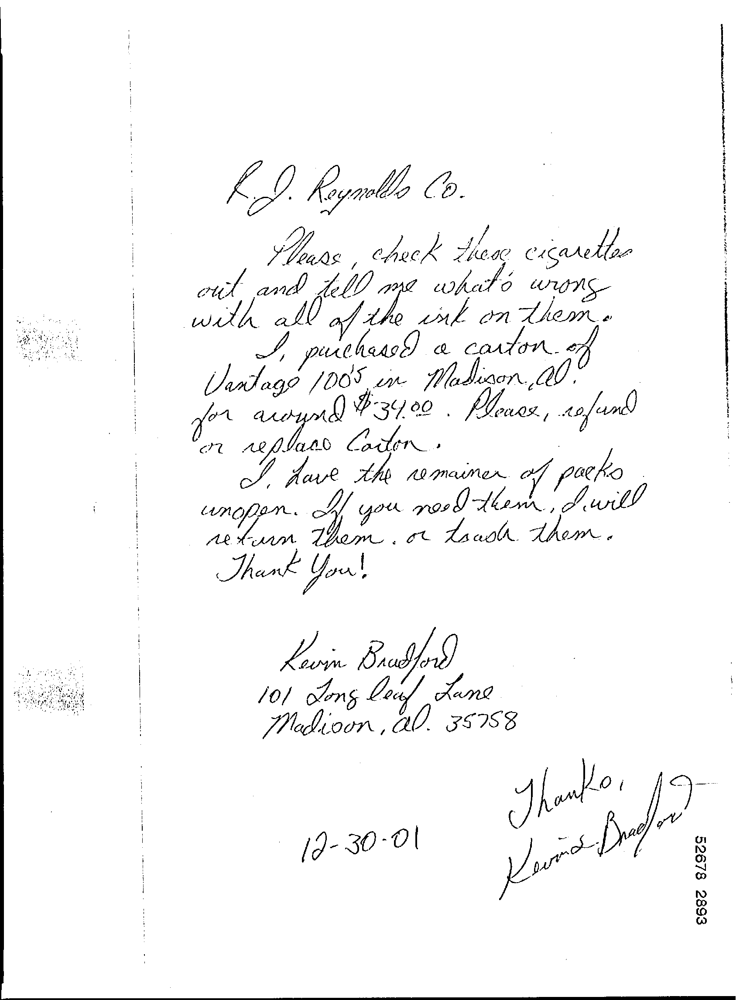 R.J. Reynolds Co.
Please, check these cigarettes
out and tell me what's wrong
with all of the ink on them.
I, purchased a carton of
Vantage 100's in Madison, Al.
for around $34.00. Please, refund
or replace Carton.
I, have the remainer of packs
unopen. If you need them, I will
return them. or trash them.
Thank You!
Kevin Bradford
101 Long leaf Lane
Madison, Al. 35758
Thanks,
Kevin L. Bradford
12-30-01
52678 2893